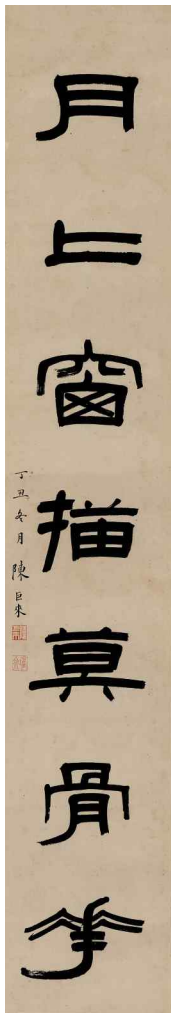 月上窗描莫骨花
丁丑冬月陳巨來